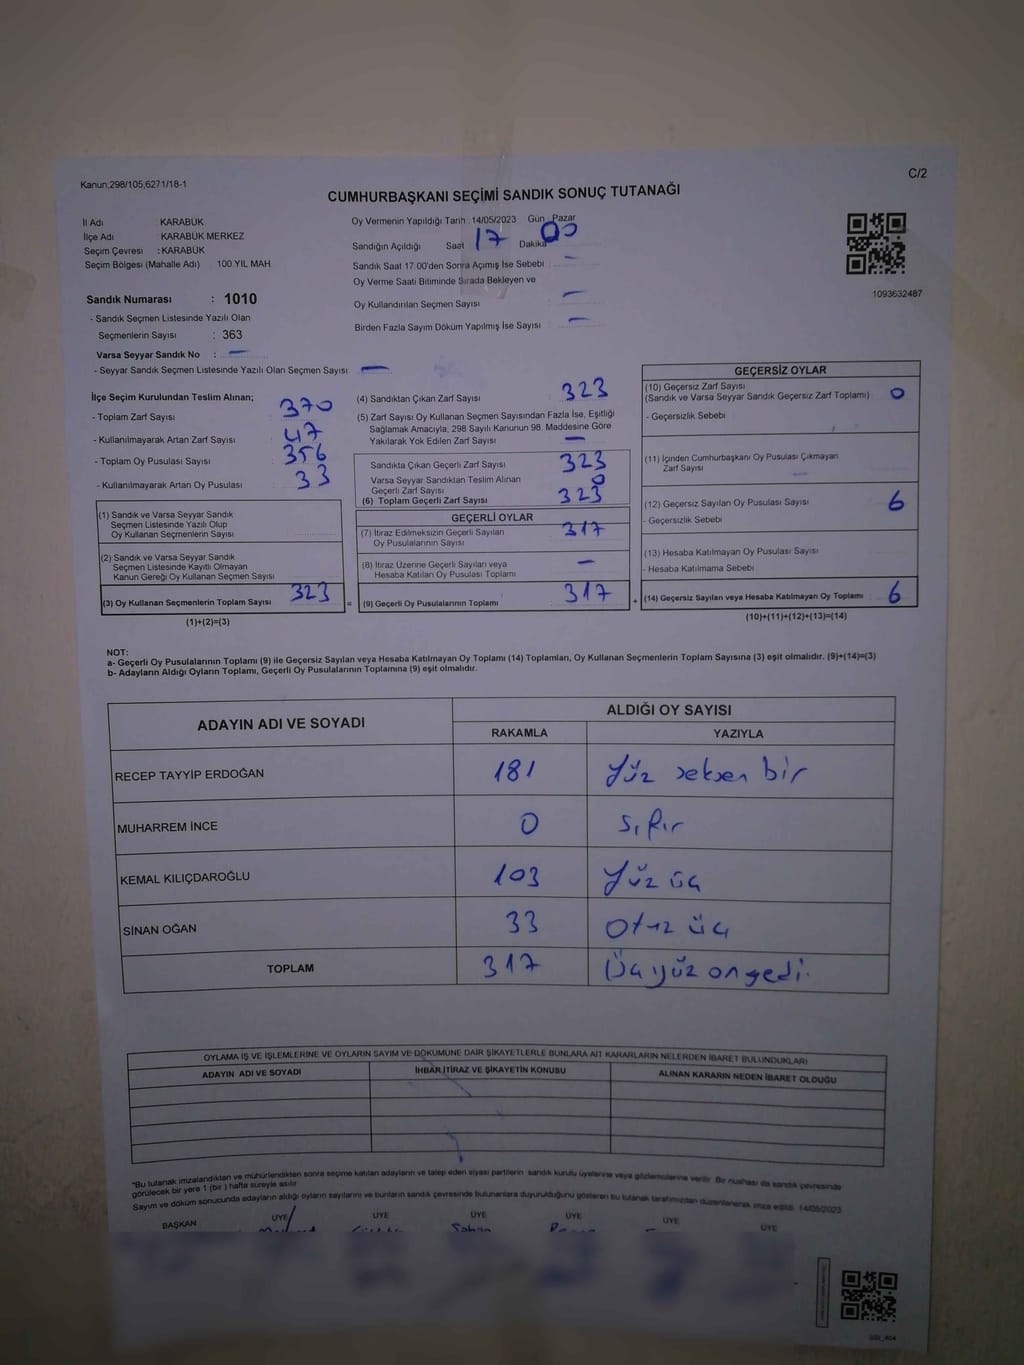 Kanun;298/105;6271/18-1
C/2
CUMHURBAŞKANI SEÇİMİ SANDIK SONUÇ TUTANAĞI
İl Adı KARABÜK
İlçe Adı KARABÜK MERKEZ
Seçim Çevresi : KARABÜK
Seçim Bölgesi (Mahalle Adı) 100.YIL MAH
Sandık Numarası : 1010
- Sandık Seçmen Listesinde Yazılı Olan
Seçmenlerin Sayısı : 363
Varsa Seyyar Sandık No : —
- Seyyar Sandık Seçmen Listesinde Yazılı Olan Seçmen Sayısı —
Oy Vermenin Yapıldığı Tarih : 14/05/2023 Gün Pazar
Sandığın Açıldığı Saat 17 Dakika 00
Sandık Saat 17:00'den Sonra Açımış İse Sebebi —
Oy Verme Saati Bitiminde Sırada Bekleyen ve
Oy Kullandırılan Seçmen Sayısı —
Birden Fazla Sayım Döküm Yapılmış İse Sayısı —
1093632487
İlçe Seçim Kurulundan Teslim Alınan;
- Toplam Zarf Sayısı 370
- Kullanılmayarak Artan Zarf Sayısı 47
- Toplam Oy Pusulası Sayısı 356
- Kullanılmayarak Artan Oy Pusulası 33
(1) Sandık ve Varsa Seyyar Sandık
Seçmen Listesinde Yazılı Olup
Oy Kullanan Seçmenlerin Sayısı
(2) Sandık ve Varsa Seyyar Sandık
Seçmen Listesinde Kayıtlı Olmayan
Kanun Gereği Oy Kullanan Seçmen Sayısı
(3) Oy Kullanan Seçmenlerin Toplam Sayısı 323
(1)+(2)=(3)
=
(4) Sandıktan Çıkan Zarf Sayısı 323
(5) Zarf Sayısı Oy Kullanan Seçmen Sayısından Fazla İse, Eşitliği
Sağlamak Amacıyla, 298 Sayılı Kanunun 98. Maddesine Göre
Yakılarak Yok Edilen Zarf Sayısı —
Sandıkta Çıkan Geçerli Zarf Sayısı 323
Varsa Seyyar Sandıktan Teslim Alınan
Geçerli Zarf Sayısı 0
(6) Toplam Geçerli Zarf Sayısı 323
GEÇERLİ OYLAR
(7) İtiraz Edilmeksizin Geçerli Sayılan
Oy Pusulalarının Sayısı 317
(8) İtiraz Üzerine Geçerli Sayılan veya
Hesaba Katılan Oy Pusulası Toplamı —
(9) Geçerli Oy Pusulalarının Toplamı 317
+
GEÇERSİZ OYLAR
(10) Geçersiz Zarf Sayısı
(Sandık ve Varsa Seyyar Sandık Geçersiz Zarf Toplamı) 0
- Geçersizlik Sebebi
(11) İçinden Cumhurbaşkanı Oy Pusulası Çıkmayan
Zarf Sayısı —
(12) Geçersiz Sayılan Oy Pusulası Sayısı 6
- Geçersizlik Sebebi
(13) Hesaba Katılmayan Oy Pusulası Sayısı
- Hesaba Katılmama Sebebi
(14) Geçersiz Sayılan veya Hesaba Katılmayan Oy Toplamı 6
(10)+(11)+(12)+(13)=(14)
NOT:
a- Geçerli Oy Pusulalarının Toplamı (9) ile Geçersiz Sayılan veya Hesaba Katılmayan Oy Toplamı (14) Toplamları, Oy Kullanan Seçmenlerin Toplam Sayısına (3) eşit olmalıdır. (9)+(14)=(3)
b- Adayların Aldığı Oyların Toplamı, Geçerli Oy Pusulalarının Toplamına (9) eşit olmalıdır.
ADAYIN ADI VE SOYADI ALDIĞI OY SAYISI
RAKAMLA YAZIYLA
RECEP TAYYİP ERDOĞAN 181 Yüz seksen bir
MUHARREM İNCE 0 Sıfır
KEMAL KILIÇDAROĞLU 103 Yüz üç
SİNAN OĞAN 33 Otuz üç
TOPLAM 317 Üç yüz on yedi.
OYLAMA İŞ VE İŞLEMLERİNE VE OYLARIN SAYIM VE DÖKÜMÜNE DAİR ŞİKAYETLERLE BUNLARA AİT KARARLARIN NELERDEN İBARET BULUNDUKLARI
ADAYIN ADI VE SOYADI İHBAR,İTİRAZ VE ŞİKAYETİN KONUSU ALINAN KARARIN NEDEN İBARET OLDUĞU
*Bu tutanak imzalandıktan ve mühürlendikten sonra seçime katılan adayların ve talep eden siyasi partilerin sandık kurulu üyelerine veya gözlemcilerine verilir. Bir nüshası da sandık çevresinde
görülecek bir yere 1 (bir ) hafta süreyle asılır
Sayım ve döküm sonucunda adayların aldığı oyların sayılarını ve bunların sandık çevresinde bulunanlara duyurulduğunu gösteren bu tutanak tarafımızdan düzenlenerek imza edildi. 14/05/2023
BAŞKAN ÜYE ÜYE ÜYE ÜYE ÜYE ÜYE